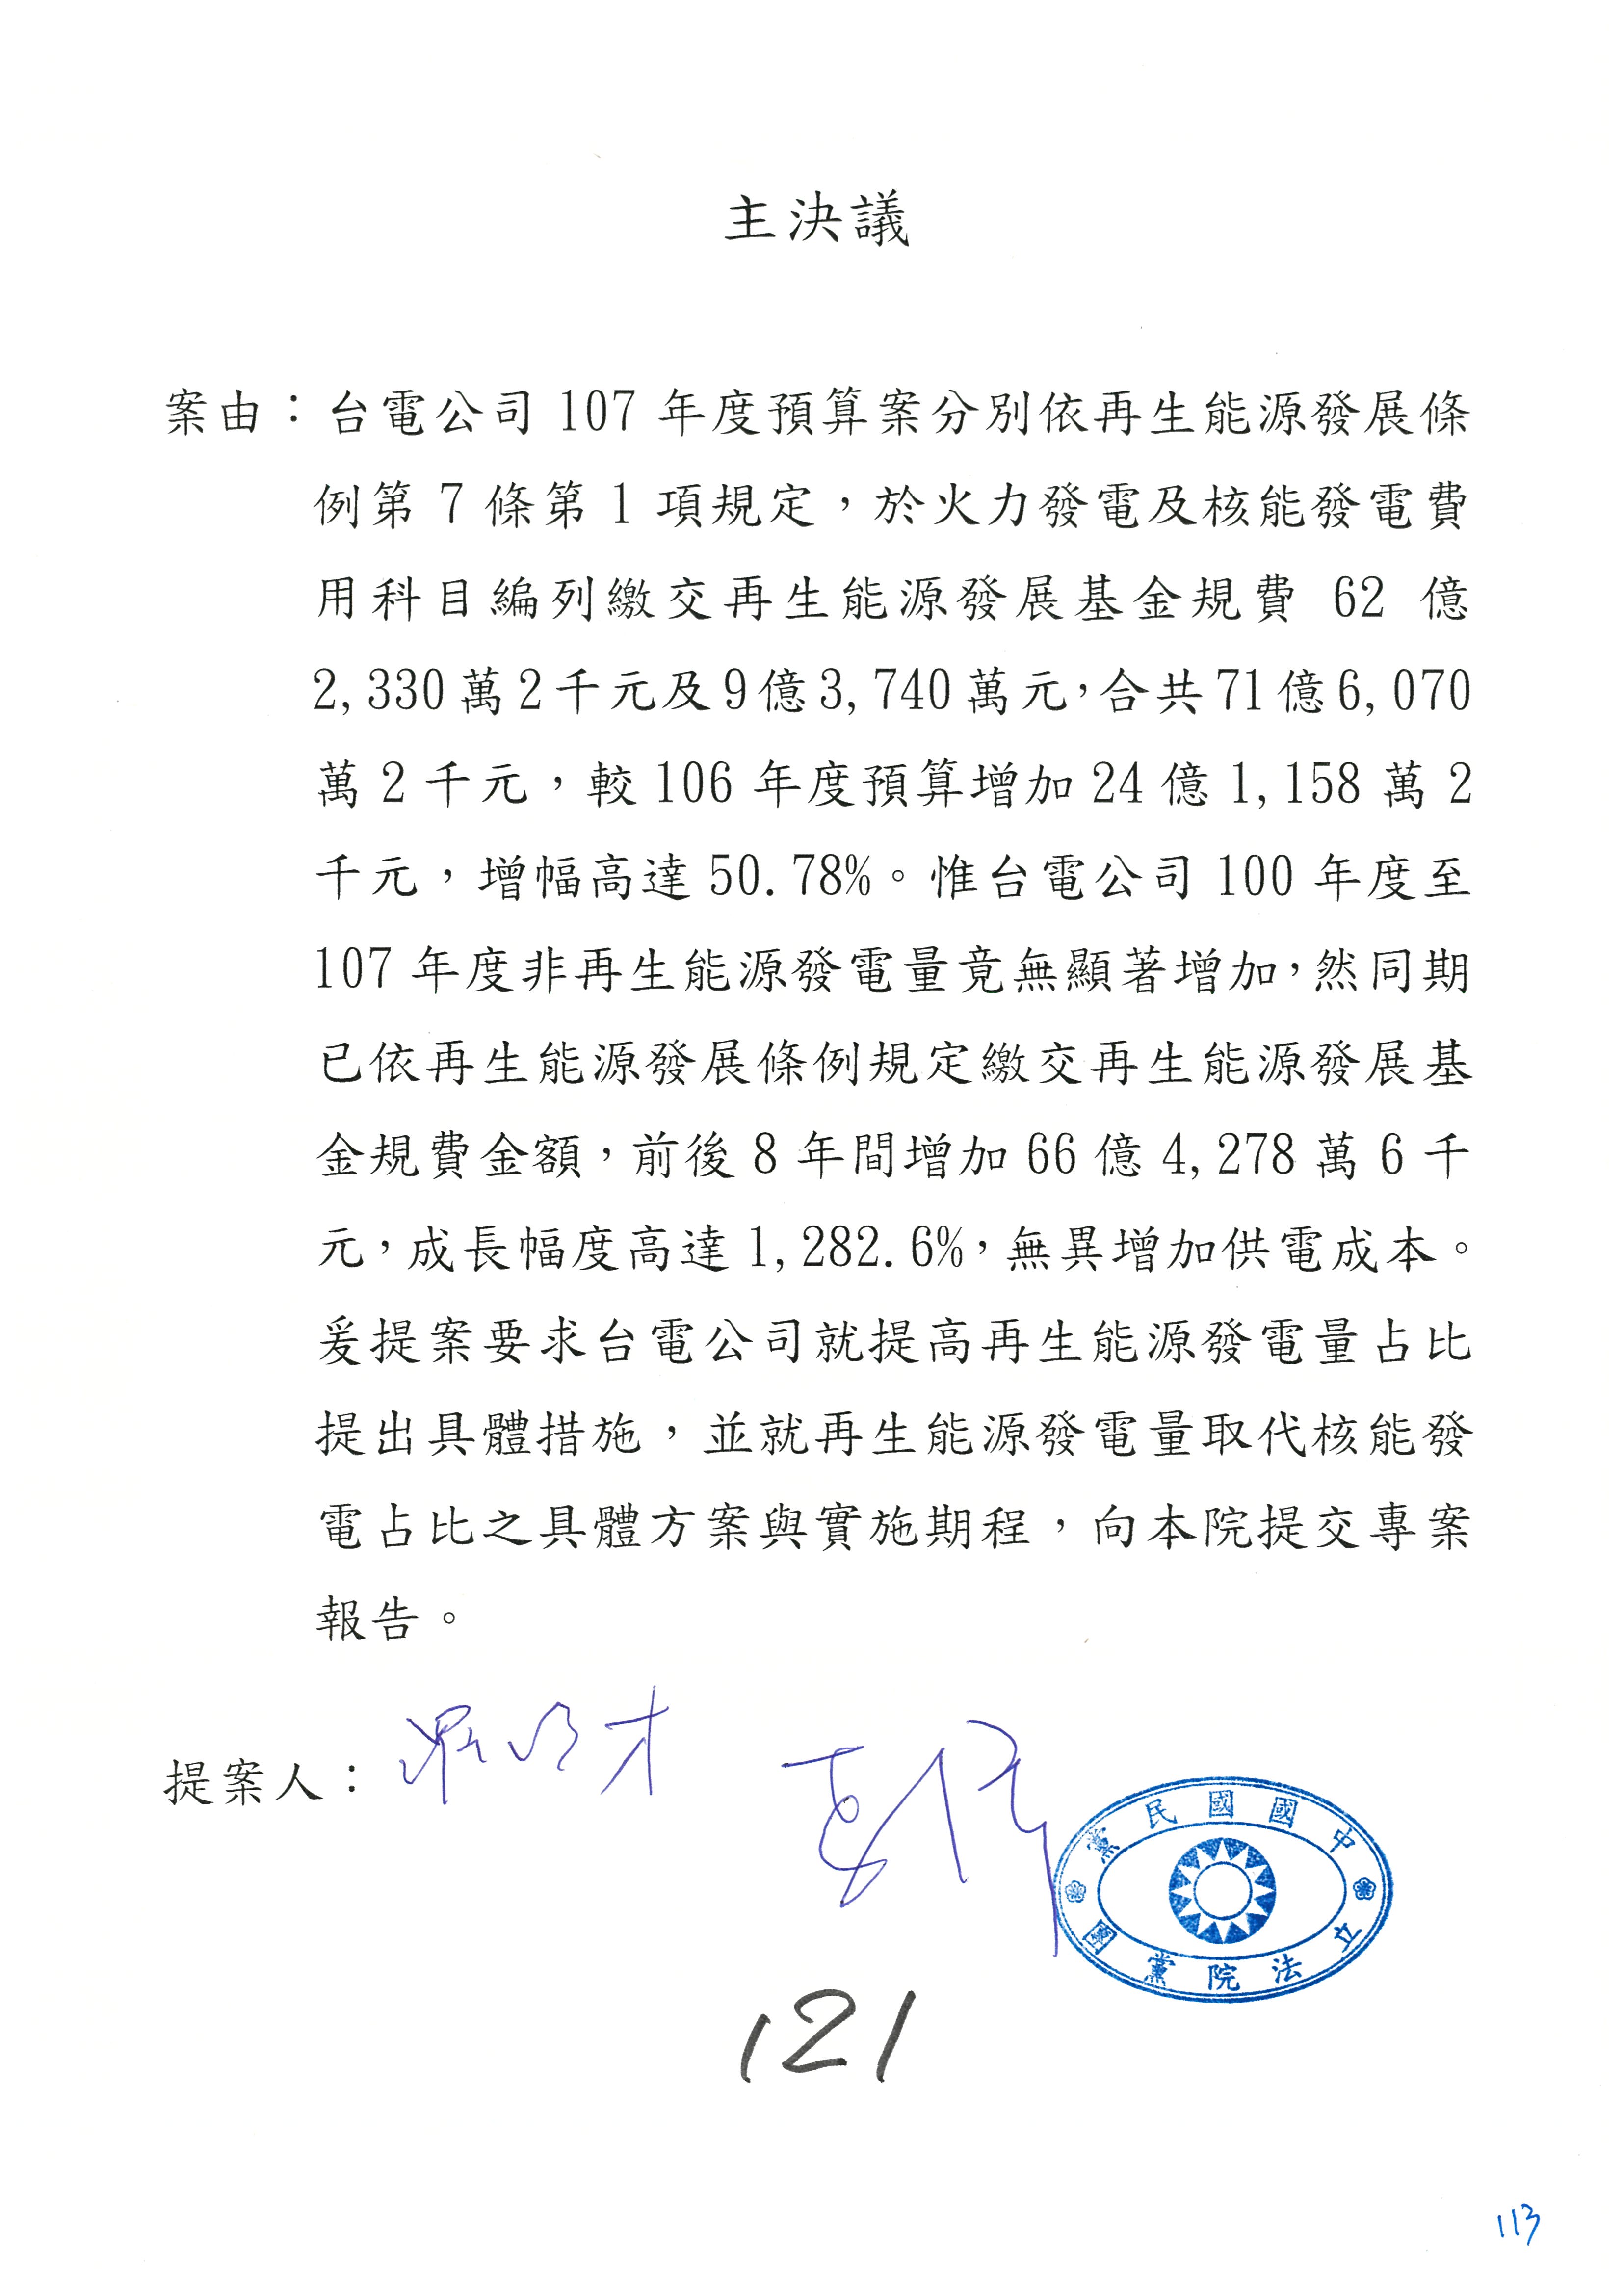 主決議
案由：台電公司 107 年度預算案分別依再生能源發展條
例第 7 條第 1 項規定，於火力發電及核能發電費
用科目編列繳交再生能源發展基金規費 62 億
2,330 萬 2 千元及 9 億 3,740 萬元，合共 71 億 6,070
萬 2 千元，較 106 年度預算增加 24 億 1,158 萬 2
千元，增幅高達 50.78%。惟台電公司 100 年度至
107 年度非再生能源發電量竟無顯著增加，然同期
已依再生能源發展條例規定繳交再生能源發展基
金規費金額，前後 8 年間增加 66 億 4,278 萬 6 千
元，成長幅度高達 1,282.6%，無異增加供電成本。
爰提案要求台電公司就提高再生能源發電量占比
提出具體措施，並就再生能源發電量取代核能發
電占比之具體方案與實施期程，向本院提交專案
報告。
提案人：
中國國民黨
立法院黨團
121
113